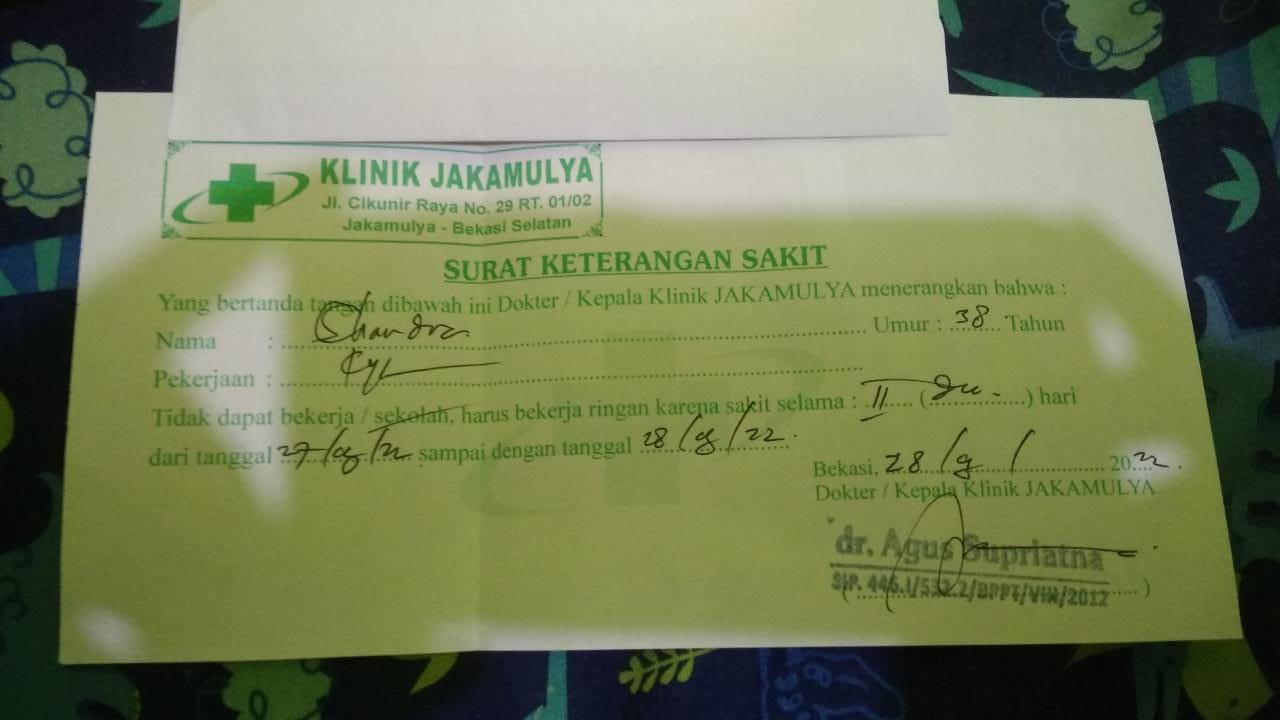 KLINIK JAKAMULYA
Jl. Cikunir Raya No. 29 RT. 01/02
Jakamulya - Bekasi Selatan
SURAT KETERANGAN SAKIT
Yang bertanda tangan dibawah ini Dokter / Kepala Klinik JAKAMULYA menerangkan bahwa :
Nama : Chandra Umur : 38 Tahun
Pekerjaan :
Tidak dapat bekerja / sekolah, harus bekerja ringan karena sakit selama : II (.....) hari
dari tanggal 27/9/22 sampai dengan tanggal 28/9/22.
Bekasi, 28/9/ 2022.
Dokter / Kepala Klinik JAKAMULYA
dr. Agus Supriatna
SIP. 446.1/532.2/BPPT/VIII/2012